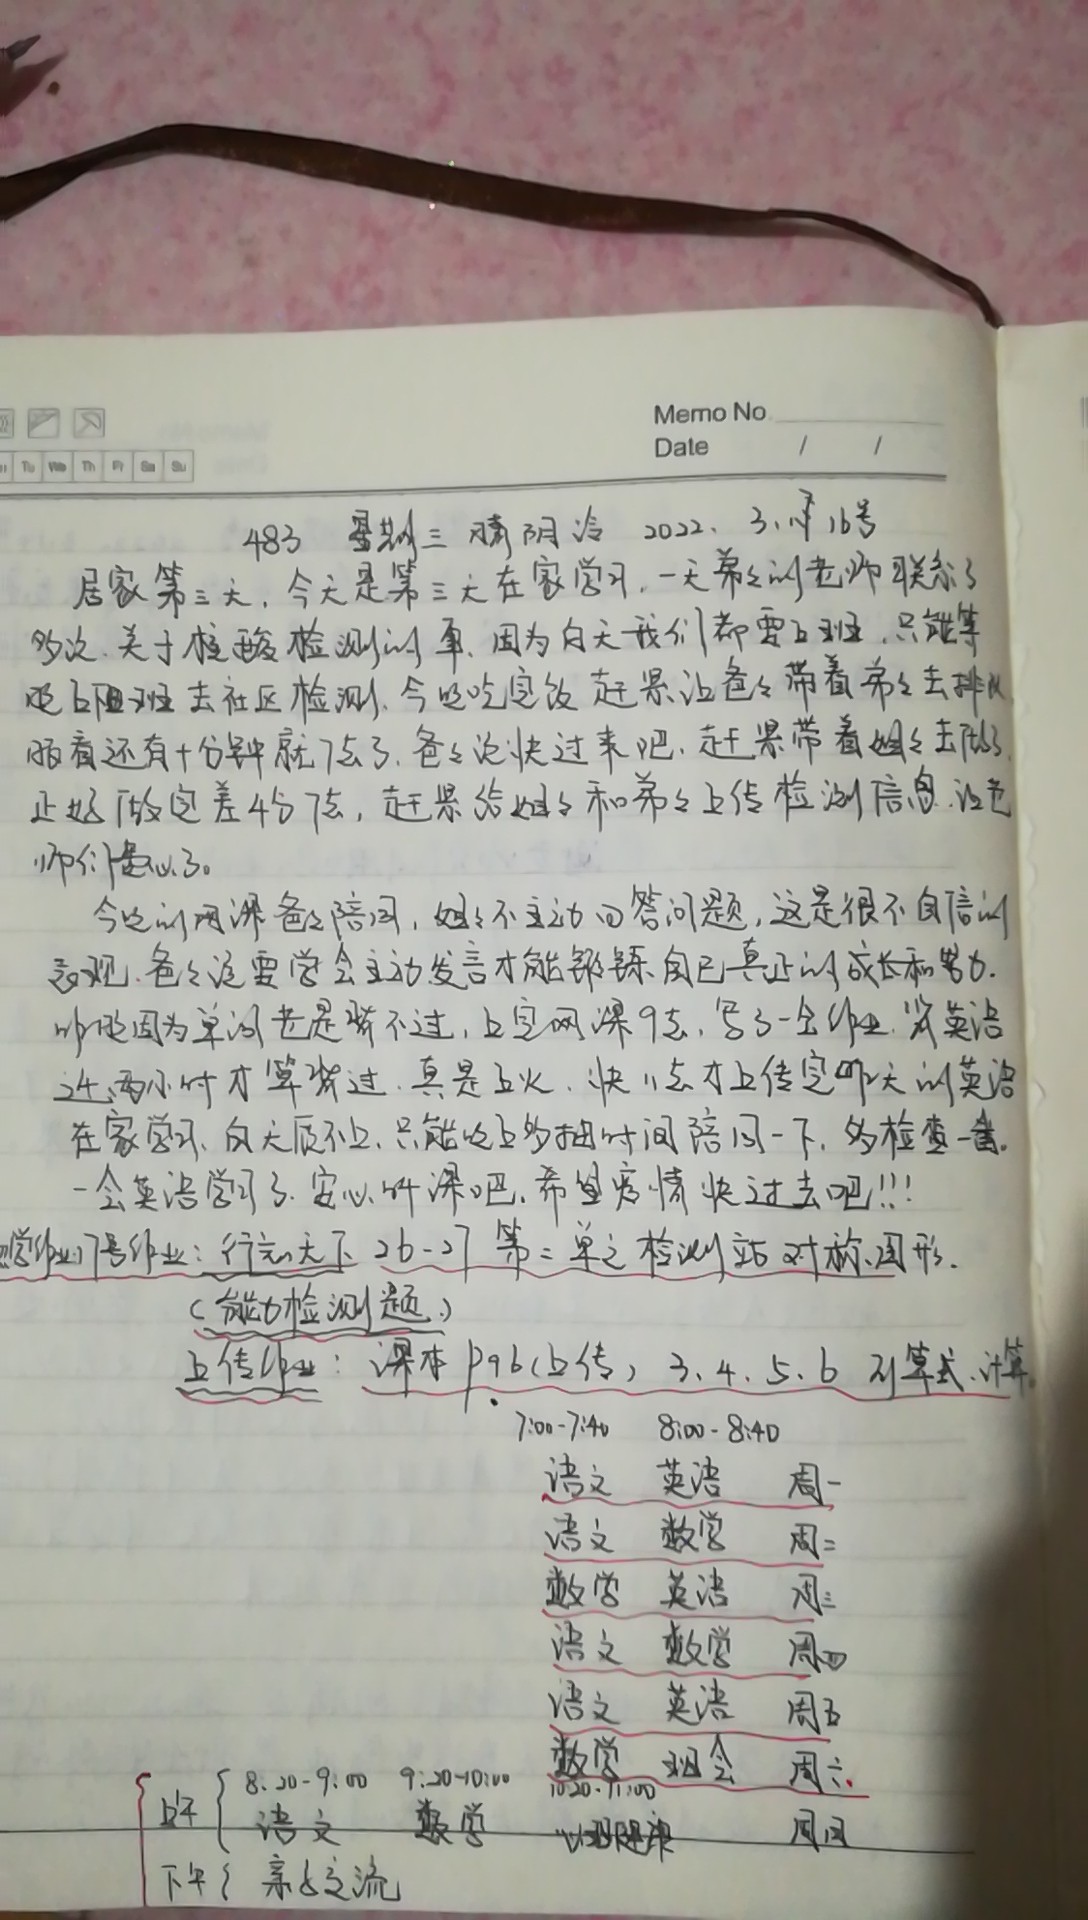 Memo No.
Date / /
Tu We Th Fr Sa Su
483 星期三 晴阴冷 2022. 3.月16号
居家第三天,今天是第三天在家学习,一天弟弟的老师联系了
多次.关于核酸检测的事,因为白天我们都要上班,只能等
晚上下班去社区检测.今晚吃完饭赶紧让爸爸带着弟弟去排队
眼看还有十分钟就7点了.爸爸说快过来吧,赶紧带着姐姐去做了
正好做完差4分7点,赶紧给姐姐和弟弟上传检测信息.让老
师们放心了。
今晚的网课爸爸陪同,姐姐不主动回答问题,这是很不自信的
表现.爸爸说要学会主动发言才能锻炼自己真正的成长和努力.
昨晚因为单词老是背不过,上完网课9点,写了一会作业.背英语
近两小时才算背过.真是上火.快11点才上传完昨天的英语
在家学习,白天顾不上,只能晚上多抽时间陪同一下,多检查一番。
一会英语学习了.安心听课吧.希望疫情快过去吧!!!
数学作业17号作业:行知天下 26-27 第二单元检测站 对称.图形.
(能力检测题)
上传作业: 课本P96(上传) 3.4.5.6 列算式.计算.
7:00-7:40 8:00-8:40
语文 英语 周一
语文 数学 周二
数学 英语 周三
语文 数学 周四
语文 英语 周五
数学 班会 周六.
8:20-9:00 9:20-10:00 10:20-11:00
上午 语文 数学 心理健康 周日
下午 亲子交流